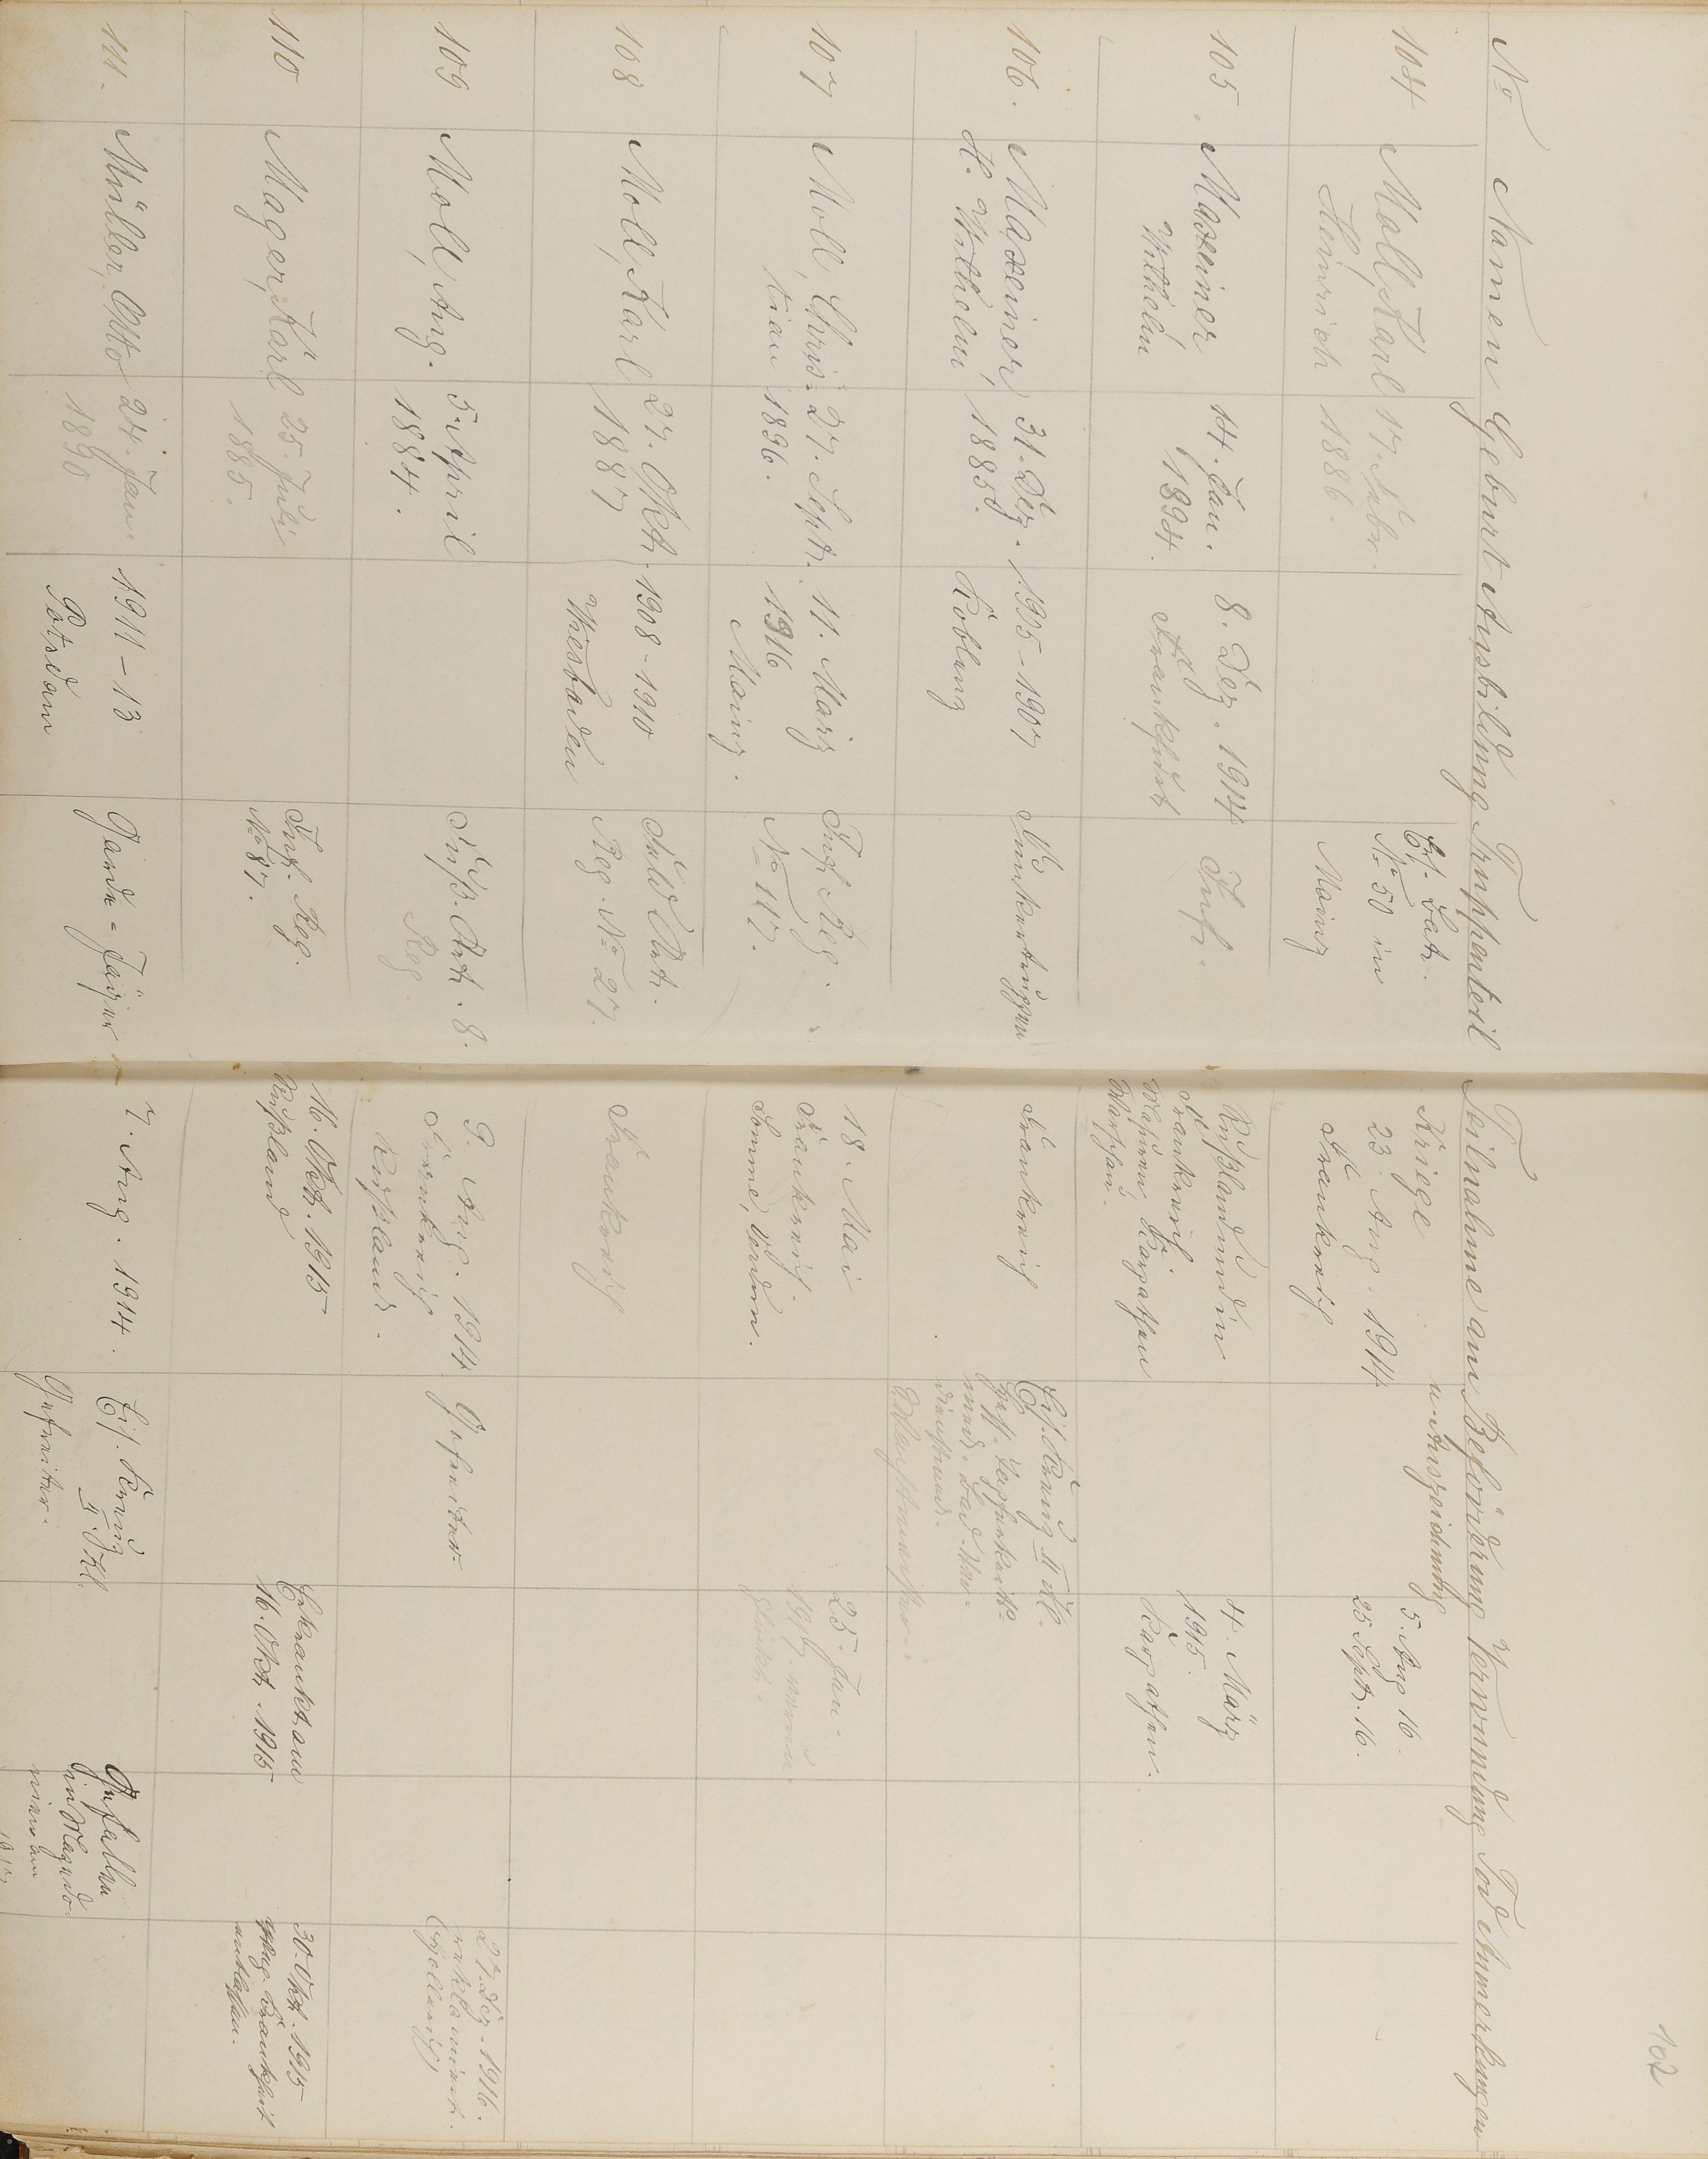 102
No Namen Geburt Ausbildung Truppenteil Teilnahme am Beförderung Verwundung Tod Anmerkungen
Kriege u. Auszeichnung
104 Moll, Karl 17. Febr. Ers. Batr. 23. Aug. 1914 5. Aug 16.
Heinrich 1886. No 50 in Frankreich 25 Sept. 16.
Mainz
105. Maxeiner 14. Jan. 8. Dez. 1914 Inf. Rußland und in 4. März
Wilhelm 1894. Frankfurt Frankreich 1915.
Karpathen Karpathen.
Warschau.
106. Maxeiner, 31. Dez. 1905-1907 Funkertruppen Frankreich Eis. Kreuz II Kl.
H. Wilhelm 1885. Koblenz
107 Moll, Chris- 27. Sept. 11. März Inf. Reg. 18. Mai 25. Jan.
tian 1896. 1916 No 117. Frankreich. 1917.
Mainz. Somme, Verdun.
108 Moll, Karl 27. Okt. 1908-1910 Feld Art. Frankreich
1887 Wiesbaden Reg. No 27.
109 Moll, Aug. 5. April Fuß. Art. 8. 9. Aug. 1914 Gefreiter. 27. Dez. 1916.
1884. Reg. Frankreich reklamiert.
Rußland.
110 Mager, Karl 25. Juli Inf. Reg. 16. Okt. 1915 Erkrankt am 30. Okt. 1915
1885. No 87. Rußland 16. Okt. 1915 Frankfurt
entlassen.
111. Müller, Otto 24. Jan. 1911-13 Garde-Jäger 7. Aug. 1914. Eis. Kreuz Gefallen
1890 Potsdam II. Kl. in Mazedo-
Gefreiter. nien am